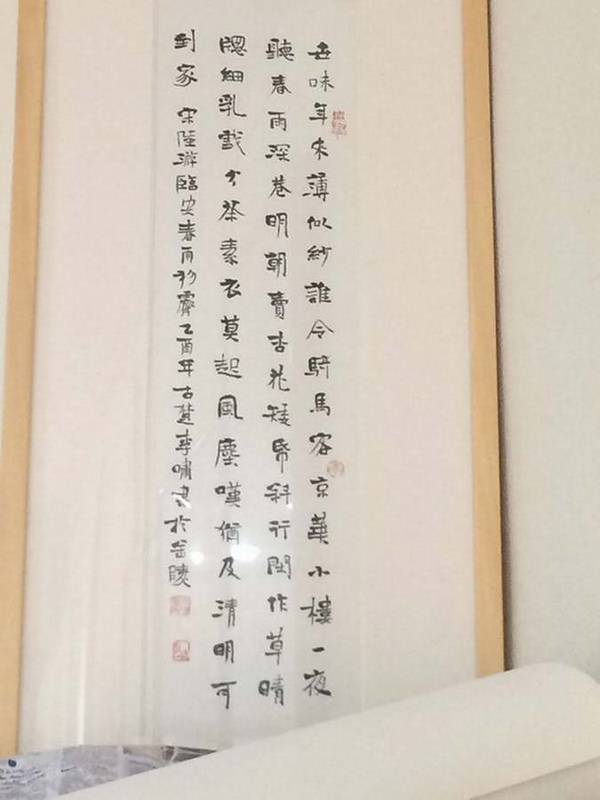 世味年來薄似紗誰令騎馬客京華小樓一夜
聽春雨深巷明朝賣杏花矮帋斜行閒作草晴
牕細乳戲分茶素衣莫起風塵嘆猶及清明可
到家 宋陸游臨安春雨初霽乙酉年古楚李嘯書於金陵